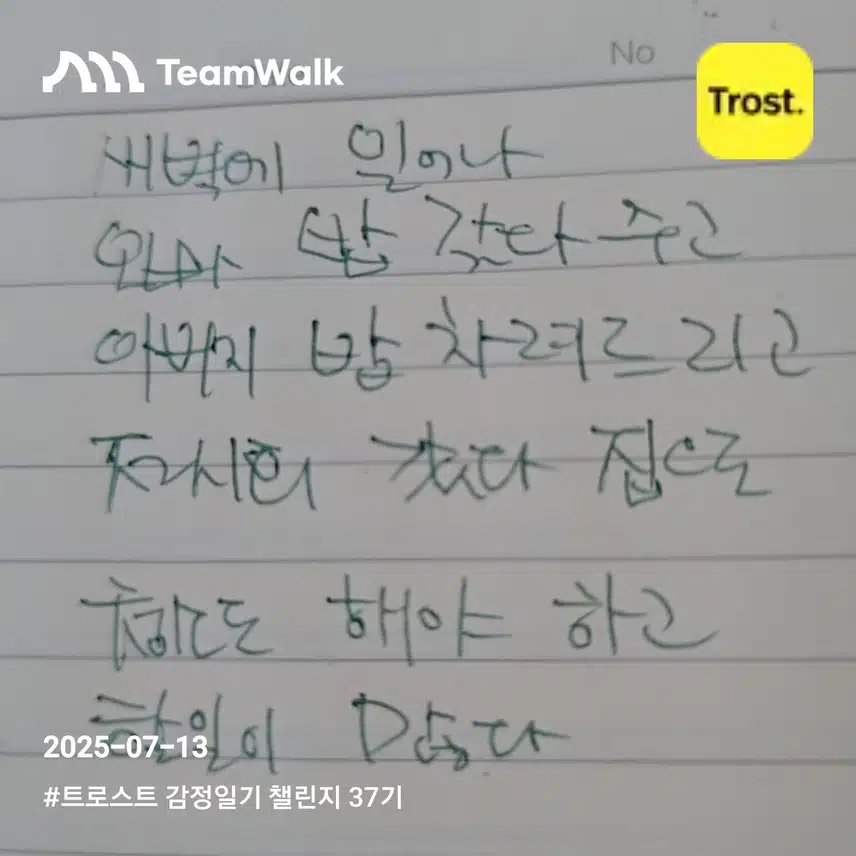 TeamWalk
No
Trost.
새벽에 일어나
엄마 밥 갖다 주고
아버지 밥 차려드리고
갔다 집으로
청소도 해야 하고
할일이 많다
2025-07-13
#트로스트 감정일기 챌린지 37기